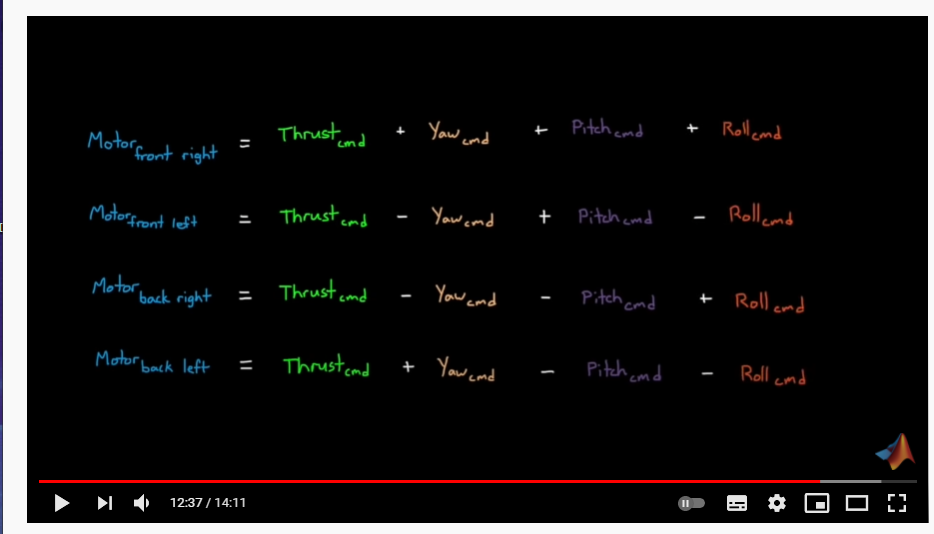 Motor front right = Thrust cmd + Yaw cmd + Pitch cmd + Roll cmd
Motor front left = Thrust cmd - Yaw cmd + Pitch cmd - Roll cmd
Motor back right = Thrust cmd - Yaw cmd - Pitch cmd + Roll cmd
Motor back left = Thrust cmd + Yaw cmd - Pitch cmd - Roll cmd
12:37 / 14:11